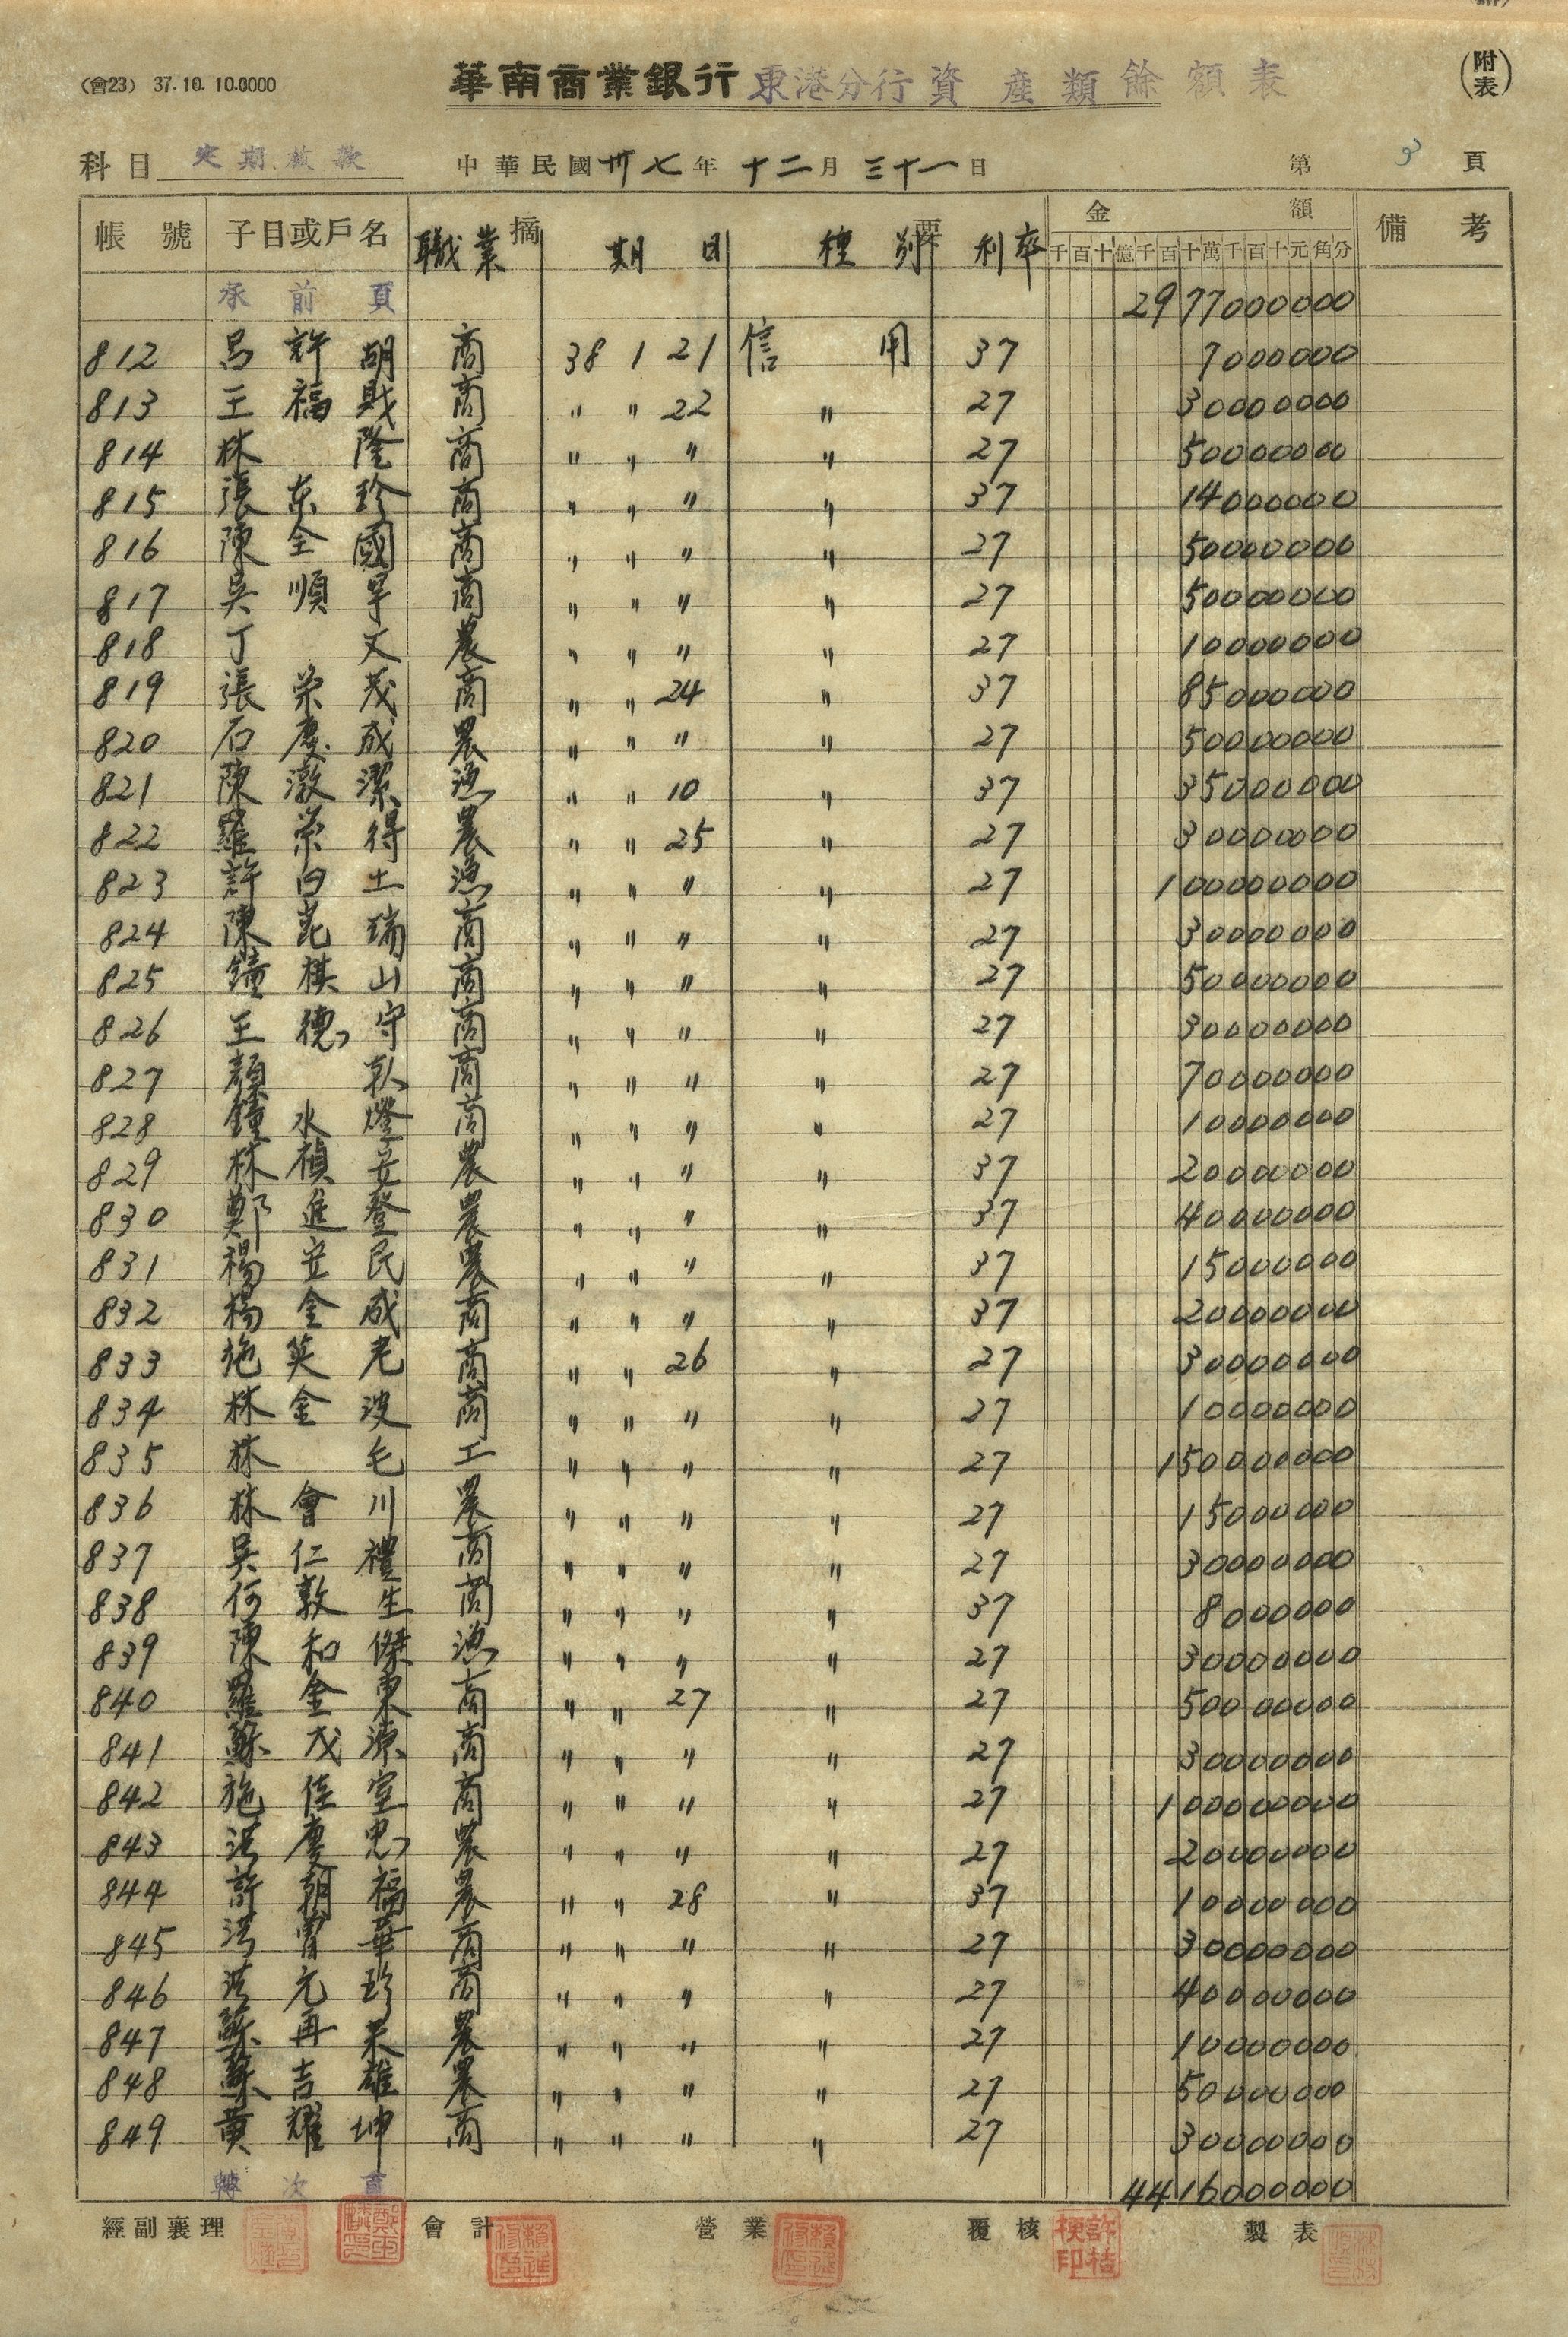 (會23) 37.10.10.0000
華南商業銀行 東港分行 資產類餘額表 (附表)
科目 定期放款 中華民國卅七年十二月三十一日 第 3 頁
帳號 子目或戶名 摘要 金額 備考
職業 期日 種別 利率 千百十億千百十萬千百十元角分
承前頁 2977000000
812 呂許胡 商 38 1 21 信用 37 7000000
813 王福財 商 〃 〃 22 〃 27 30000000
814 林隆 商 〃 〃 〃 〃 27 50000000
815 張東珍 商 〃 〃 〃 〃 37 14000000
816 陳全國 商 〃 〃 〃 〃 27 50000000
817 吳順早 商 〃 〃 〃 〃 27 50000000
818 丁文 農 〃 〃 〃 〃 27 10000000
819 張榮茂 商 〃 〃 24 〃 37 85000000
820 石慶成 農 〃 〃 〃 〃 27 50000000
821 陳激潔 漁 〃 〃 10 〃 37 35000000
822 羅榮得 農 〃 〃 25 〃 27 30000000
823 許白土 漁 〃 〃 〃 〃 27 100000000
824 陳崑瑞 商 〃 〃 〃 〃 27 30000000
825 鐘棋山 商 〃 〃 〃 〃 27 50000000
826 王德守 商 〃 〃 〃 〃 27 30000000
827 顏 商 〃 〃 〃 〃 27 70000000
828 鐘水燈 商 〃 〃 〃 〃 27 10000000
829 林禎安 農 〃 〃 〃 〃 37 20000000
830 鄭進登 農 〃 〃 〃 〃 37 40000000
831 楊安民 農 〃 〃 〃 〃 37 15000000
832 楊金咸 商 〃 〃 〃 〃 37 20000000
833 施英老 商 〃 〃 26 〃 27 30000000
834 林金波 商 〃 〃 〃 〃 27 10000000
835 林毛 工 〃 〃 〃 〃 27 150000000
836 林會川 農 〃 〃 〃 〃 27 15000000
837 吳仁禮 商 〃 〃 〃 〃 27 30000000
838 何敦生 商 〃 〃 〃 〃 37 8000000
839 陳和傑 漁 〃 〃 〃 〃 27 30000000
840 羅金東 商 〃 〃 27 〃 27 50000000
841 蘇戊源 商 〃 〃 〃 〃 27 30000000
842 施佳室 商 〃 〃 〃 〃 27 100000000
843 洪慶忠 農 〃 〃 〃 〃 27 20000000
844 許朝福 農 〃 〃 28 〃 37 10000000
845 洪曾華 商 〃 〃 〃 〃 27 30000000
846 洪元珍 商 〃 〃 〃 〃 27 40000000
847 蘇再呆 農 〃 〃 〃 〃 27 10000000
848 蘇吉雄 農 〃 〃 〃 〃 27 50000000
849 黃耀坤 商 〃 〃 〃 〃 27 30000000
轉次頁 4416000000
經副襄理 會計 營業 覆核 許桔梗印 製表